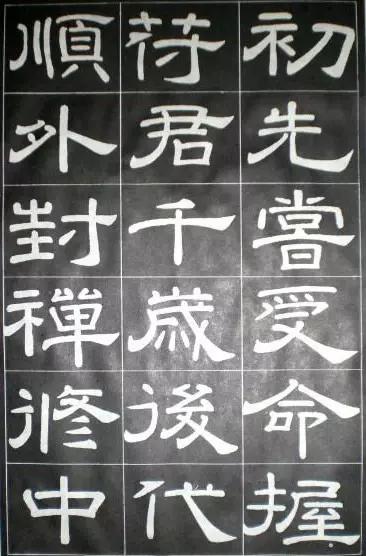 初先嘗受命握
符君千歲後代
順外封禪修中